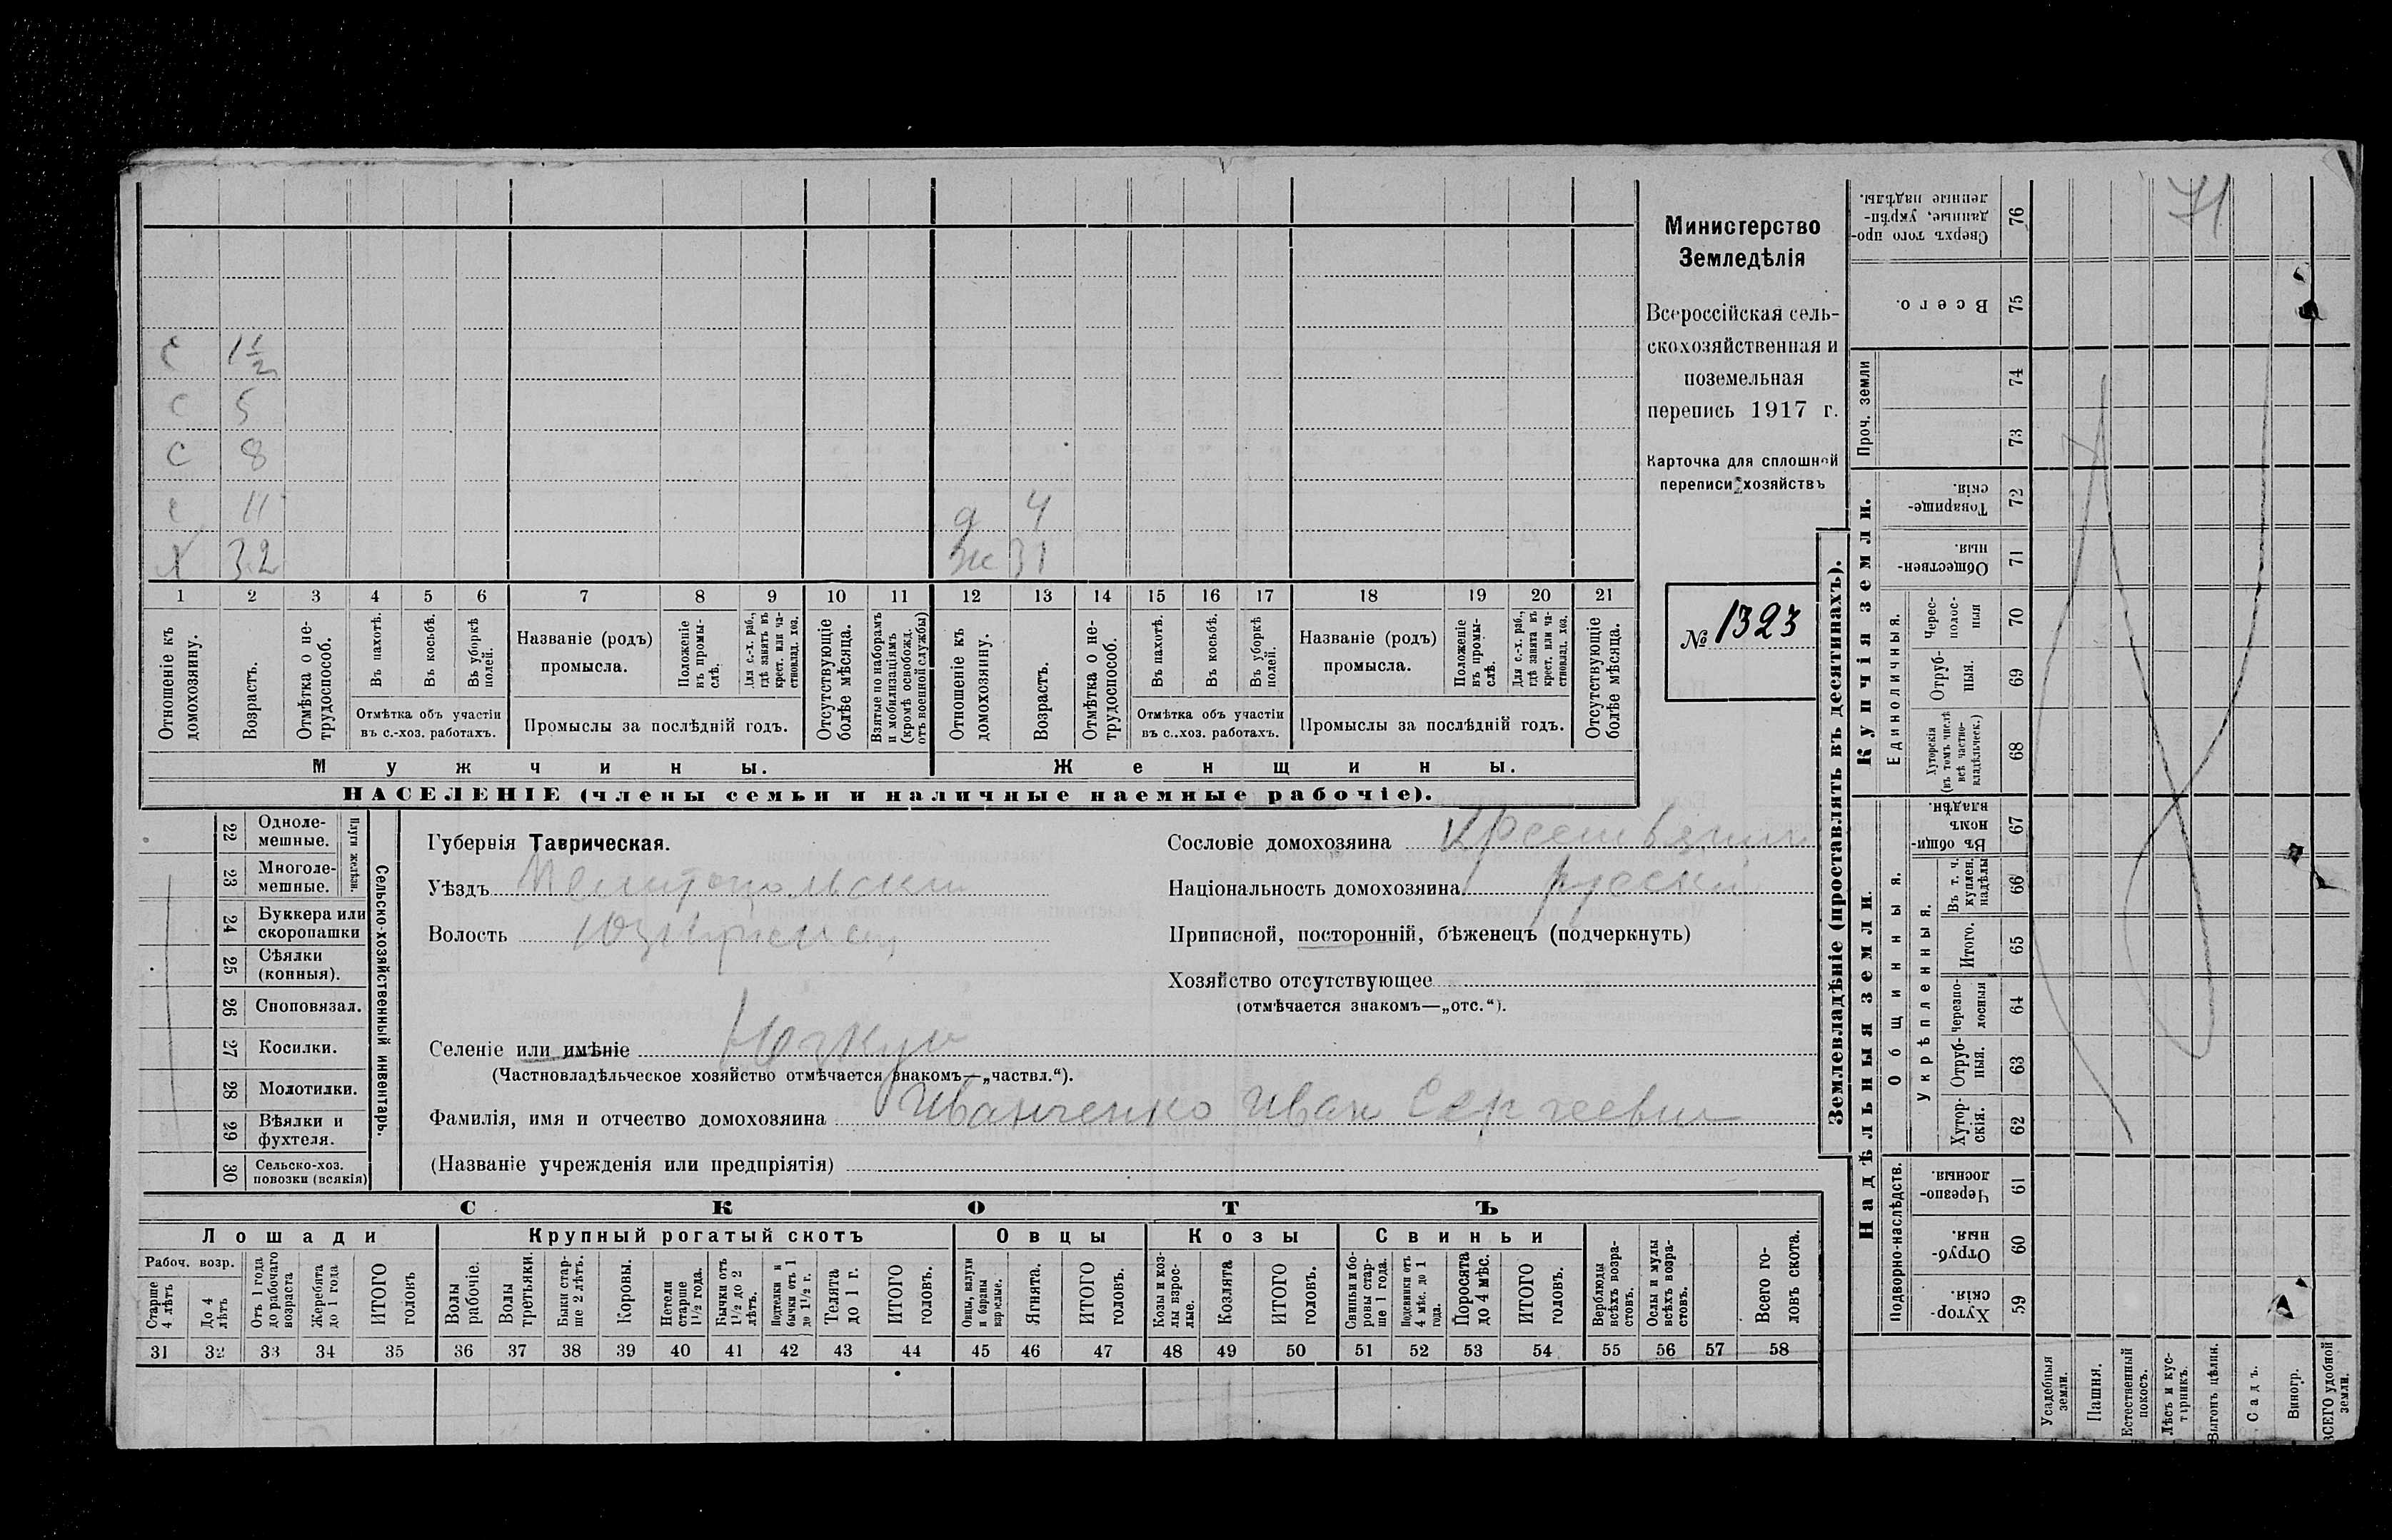 71
с 1 1/2
с 5
с 8
с 11
д 4
Х 32
ж 31
1 2 3 4 5 6 7 8 9 10 11 12 13 14 15 16 17 18 19 20 21
Отношеніе къ домохозяину.
Возрастъ.
Отмѣтка о не-
трудоспособ.
Въ пахотѣ.
Въ косьбѣ.
Въ уборкѣ полей.
Отмѣтка объ участіи
въ с.-хоз. работахъ.
Названіе (родъ)
промысла.
Положеніе
въ промы-
слѣ.
Для с.-х. раб.,
гдѣ занятъ въ
крест. или ча-
стновлад. хоз.
Промыслы за послѣдній годъ.
Отсутствующіе
болѣе мѣсяца.
Взятые по наборамъ
и мобилизаціямъ
(кромѣ освобожд.
отъ военной службы)
Отношеніе къ
домохозяину.
Возрастъ.
Отмѣтка о не-
трудоспособ.
Въ пахотѣ.
Въ косьбѣ.
Въ уборкѣ
полей.
Отмѣтка объ участіи
въ с.-хоз. работахъ.
Названіе (родъ)
промысла.
Положеніе
въ промы-
слѣ.
Для с.-х. раб.,
гдѣ занята въ
крест. или ча-
стновлад. хоз.
Промыслы за послѣдній годъ.
Отсутствующіе
болѣе мѣсяца.
Мужчины.
Женщины.
НАСЕЛЕНІЕ (члены семьи и наличные наемные рабочіе).
Министерство
Земледѣлія
Всероссійская сель-
скохозяйственная и
поземельная
перепись 1917 г.
Карточка для сплошной
переписи хозяйствъ
№ 1323
22 Одноле-
мешные.
23 Многоле-
мешные.
Плуги желѣзн.
24 Буккера или
скоропашки
25 Сѣялки
(конныя).
26 Сноповязал.
27 Косилки.
28 Молотилки.
29 Вѣялки и
фухтеля.
30 Сельско-хоз.
повозки (всякія)
Сельско-хозяйственный инвентарь.
Губернія Таврическая.
Уѣздъ Мелитопольскій
Волость
Селеніе или имѣніе
(Частновладѣльческое хозяйство отмѣчается знакомъ—„частвл.“).
Фамилія, имя и отчество домохозяина Иванченко Иван Сергеевич
(Названіе учрежденія или предпріятія)
Сословіе домохозяина Крестьянин
Національность домохозяина руский
Приписной, посторонній, бѣженецъ (подчеркнуть)
Хозяйство отсутствующее
(отмѣчается знакомъ—„отс.“).
СКОТЪ
Лошади
Крупный рогатый скотъ
Овцы
Козы
Свиньи
Рабоч. возр.
Старше
4 лѣтъ
До 4
лѣтъ
Отъ 1 года
до рабочаго
возраста
Жеребята
до 1 года
ИТОГО
головъ
Волы
рабочіе.
Волы
третьяки.
Быки стар-
ше 2 лѣтъ.
Коровы.
Нетели
старше
1½ года.
Бычки отъ
1½ до 2
лѣтъ.
Подтелки и
бычки отъ 1
до 1½ г.
Телята
до 1 г.
ИТОГО
головъ.
Овцы, валухи
и бараны
взрослые.
Ягнята.
ИТОГО
головъ.
Козы и коз-
лы взрос-
лые.
Козлята
ИТОГО
головъ.
Свиньи и бо-
ровы стар-
ше 1 года.
Подсвинки отъ
4 мѣс. до 1
года.
Поросята
до 4 мѣс.
ИТОГО
головъ.
Верблюды
всѣхъ возра-
стовъ.
Ослы и мулы
всѣхъ возра-
стовъ.
Всего го-
ловъ скота.
31 32 33 34 35 36 37 38 39 40 41 42 43 44 45 46 47 48 49 50 51 52 53 54 55 56 57 58
Землевладѣніе (проставлять въ десятинахъ).
Купчія земли.
Надѣльныя земли.
Сверхъ того про-
данные, укрѣп-
ленные надѣлы.
76
Всего.
75
Проч. земли
74
73
Товарище-
скія.
72
Обществен-
ныя.
71
Единоличныя.
Черес-
полос-
ныя
70
Отруб-
ныя.
69
Хуторскія
(въ томъ числѣ
всѣ частно-
владѣльческ.)
68
Общинныя.
Въ общин-
номъ
владѣн.
67
Укрѣпленныя.
Въ т. ч.
куплен.
надѣлы
66
Итого.
65
Черезпо-
лосныя
64
Отруб-
ныя.
63
Хутор-
скія.
62
Подворно-наслѣдств.
Черезпо-
лосныя.
61
Отруб-
ныя.
60
Хутор-
скія.
59
Усадебныя
земли.
Пашня.
Естественный
покосъ.
Лѣсъ и кус-
тарникъ.
Выгонъ цѣлин.
Садъ.
Виногр.
ВСЕГО удобной
земли.